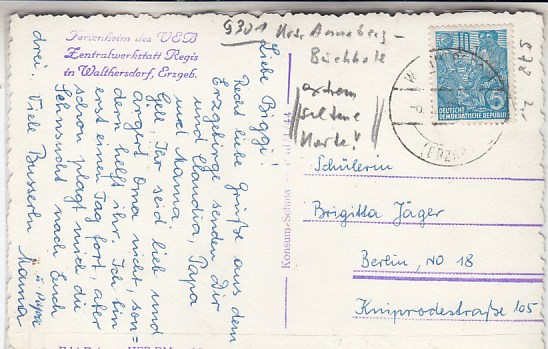 Ferienheim des VEB
Zentralwerkstatt Regis
in Walthersdorf, Erzgeb.
9301 Krs. Annaberg-
Buchholz
extrem
seltene
Karte!
Liebe Biggi!
Recht liebe Grüße aus dem
Erzgebirge senden Dir
und Claudia, Papa
und Mama.
Gell, Ihr seid lieb und
ärgert Oma nicht, son=
dern helft ihr. Ich bin
erst einen Tag fort, aber
schon plagt mich die
Sehnsucht nach Euch
drei. Viele Busserln
Mama
DEUTSCHE
DEMOKRATISCHE REPUBLIK
5
Schülerin
Brigitta Jäger
Berlin, NO 18
Kniprodestraße 105